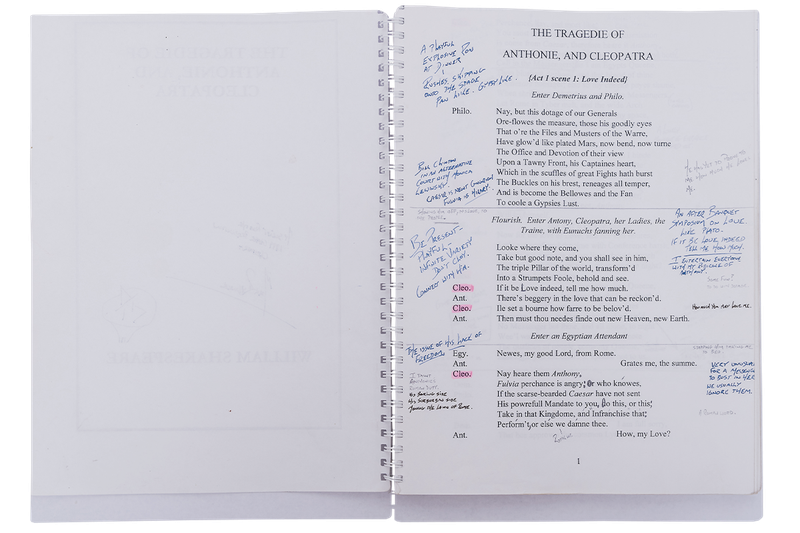 THE TRAGEDIE OF
ANTHONIE, AND CLEOPATRA
{Act 1 scene 1: Love Indeed}
Enter Demetrius and Philo.
A PLAYFUL
EXPLOSIVE ROW
AT DINNER
RUSHES SKIPPING
ONTO THE STAGE
PAN LIKE. GYPSY LIKE.
Philo. Nay, but this dotage of our Generals
Ore-flowes the measure, those his goodly eyes
That o're the Files and Musters of the Warre,
Have glow'd like plated Mars, now bend, now turne
The Office and Devotion of their view
Upon a Tawny Front, his Captaines heart,
Which in the scuffles of great Fights hath burst
The Buckles on his brest, reneages all temper,
And is become the Bellowes and the Fan
To coole a Gypsies Lust.
BILL CLINTON
IN AN ALTERNATIVE
COURT WITH MONICA
LEWINSKY.
Flourish. Enter Antony, Cleopatra, her Ladies, the
Traine, with Eunuchs fanning her.
BE PRESENT-
PLAYFUL-
INFINITE VARIETY
DON'T CLAY.
CONNECT WITH HIM.
AN AFTER BANQUET
SYMPOSIUM ON LOVE.
LIKE PLATO.
IF IT BE LOVE, INDEED
TELL ME HOW MUCH.
I ENTERTAIN EVERYONE
WITH MY
Looke where they come,
Take but good note, and you shall see in him,
The triple Pillar of the world, transform'd
Into a Strumpets Foole, behold and see.
Cleo. If it be Love indeed, tell me how much.
Ant. There's beggery in the love that can be reckon'd.
Cleo. Ile set a bourne how farre to be belov'd.
HOW MUCH YOU MAY LOVE ME.
Ant. Then must thou needes finde out new Heaven, new Earth.
Enter an Egyptian Attendant
THE ISSUE OF HIS LACK OF
FREEDOM.
Egy. Newes, my good Lord, from Rome.
Ant. Grates me, the summe.
Cleo. Nay heare them Anthony,
Fulvia perchance is angry; Or who knowes,
If the scarse-bearded Caesar have not sent
His powrefull Mandate to you, Do this, or this;
Take in that Kingdome, and Infranchise that;
Perform't, or else we damne thee.
Ant. How, my Love?
VERY UNUSUAL
FOR A MESSENGER
TO BUST IN HERE
WE USUALLY
IGNORE THEM.
1